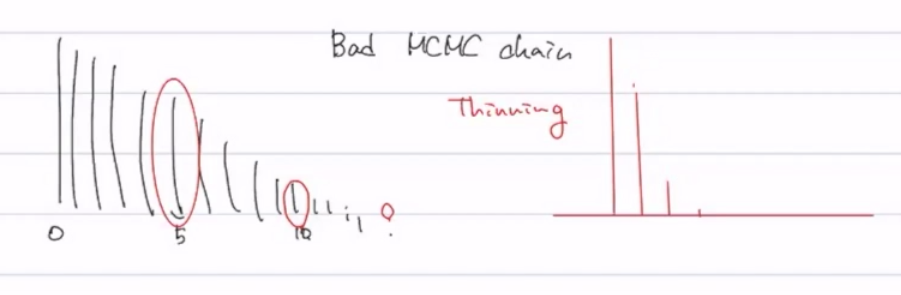 Bad MCMC chain
Thinning
0 5 10